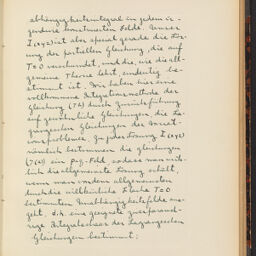 abhängigkeitsintegral in jedem ir-
gendwie konstruierten Felde. Unser
I(xyz) ist also speziell gerade die Lös-
ung der partiellen Gleichung, die auf
T=0 verschwindet, und die, wie die all-
gemeine Theorie lehrt, eindeutig be-
stimmt ist. Wir haben hier eine
vollkommene Integrationsmethode der
Gleichung (76) durch Zurückführung
auf gewöhnliche Gleichungen, die La-
grangeschen Gleichungen des Variat-
ionsproblems. Zu jeder Lösung I(xyz)
nämlich bestimmen die Gleichungen
(7(6)) ein p.q.-Feld, sodass man wirk-
lich die allgemeinste Lösung erhält,
wenn man von dem allgemeinsten
durch die willkürliche Fläche T=0
bestimmten Unabhängigkeitsfelde aus-
geht, d.h. eine geeignete zweiparamet-
rige Integralschaar der Lagrangeschen
Gleichungen bestimmt: